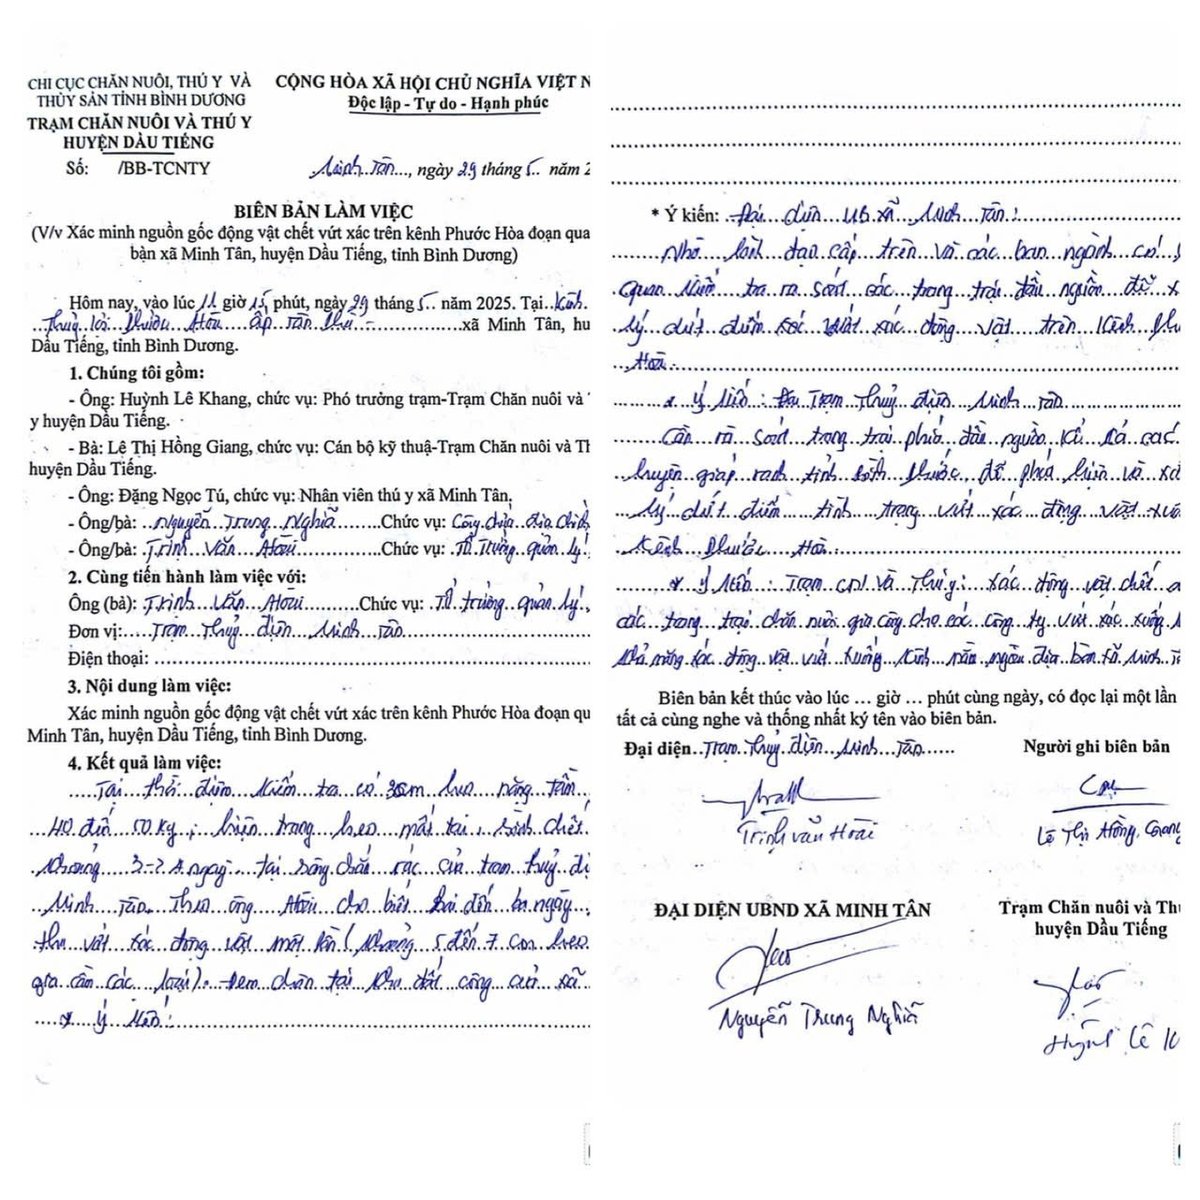 CHI CỤC CHĂN NUÔI, THÚ Y VÀ
THỦY SẢN TỈNH BÌNH DƯƠNG
TRẠM CHĂN NUÔI VÀ THÚ Y
HUYỆN DẦU TIẾNG
Số: /BB-TCNTY
CỘNG HÒA XÃ HỘI CHỦ NGHĨA VIỆT N
Độc lập - Tự do - Hạnh phúc
Minh Tân, ngày 29 tháng 5 năm 2
BIÊN BẢN LÀM VIỆC
(V/v Xác minh nguồn gốc động vật chết vứt xác trên kênh Phước Hòa đoạn qua
bàn xã Minh Tân, huyện Dầu Tiếng, tỉnh Bình Dương)
Hôm nay, vào lúc 11 giờ 15 phút, ngày 29 tháng 5 năm 2025. Tại Kênh
Thuỷ lợi Phước Hòa ấp Tân Phú - xã Minh Tân, hu
Dầu Tiếng, tỉnh Bình Dương.
1. Chúng tôi gồm:
- Ông: Huỳnh Lê Khang, chức vụ: Phó trưởng trạm-Trạm Chăn nuôi và
y huyện Dầu Tiếng.
- Bà: Lê Thị Hồng Giang, chức vụ: Cán bộ kỹ thuậ-Trạm Chăn nuôi và Th
huyện Dầu Tiếng.
- Ông: Đặng Ngọc Tú, chức vụ: Nhân viên thú y xã Minh Tân.
- Ông/bà: Nguyễn Trung Nghĩa Chức vụ: Công chức địa chính
- Ông/bà: Trịnh Văn Hoài Chức vụ: Tổ trưởng quản lý
2. Cùng tiến hành làm việc với:
Ông (bà): Trịnh Văn Hoài Chức vụ: Tổ trưởng quản lý
Đơn vị: Trạm Thuỷ điện Minh Tân
Điện thoại:
3. Nội dung làm việc:
Xác minh nguồn gốc động vật chết vứt xác trên kênh Phước Hòa đoạn qu
Minh Tân, huyện Dầu Tiếng, tỉnh Bình Dương.
4. Kết quả làm việc:
Tại thời điểm kiểm tra có con heo nặng tầm
40 đến 50 kg; hiện trạng heo mất tai, sình chết
khoảng ngày tại song chắn rác của trạm thuỷ đi
Minh Tân. Theo ông Hoài cho biết hai đến ba ngày
thu vớt xác động vật một lần (khoảng 5 đến 7 con heo
gia cầm các loại). Đem chôn tại khu đất công của xã
* Ý kiến:
* Ý kiến: Đại diện UB xã Minh Tân:
Nhờ lãnh đạo cấp trên và các ban ngành có
quan kiểm tra rà soát các trang trại đầu nguồn để x
lý dứt điểm xác động vật trên kênh Phư
Hòa.
* Ý kiến: Đại Trạm Thuỷ điện Minh Tân
Cần rà soát trang trại phía đầu nguồn kể cả các
huyện giáp ranh tỉnh Bình Phước, để phát hiện và xử
lý dứt điểm tình trạng vứt xác động vật xuố
kênh Phước Hòa.
* Ý kiến: Trạm CN và Thú y: xác động vật chết
các trang trại chăn nuôi gia công cho các công ty vứt xác xuống
khả năng xác động vật vứt xuống kênh nằm ngoài địa bàn xã Minh T
Biên bản kết thúc vào lúc … giờ … phút cùng ngày, có đọc lại một lần
tất cả cùng nghe và thống nhất ký tên vào biên bản.
Đại diện Trạm Thuỷ điện Minh Tân
Người ghi biên bản
Trịnh Văn Hoài
Lê Thị Hồng Giang
ĐẠI DIỆN UBND XÃ MINH TÂN
Trạm Chăn nuôi và Thú
huyện Dầu Tiếng
Nguyễn Trung Nghĩa
Huỳnh Lê K